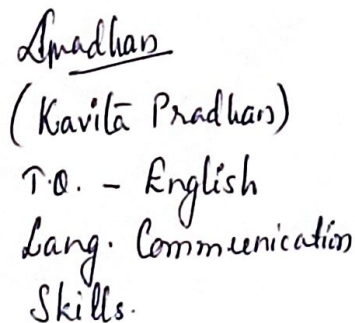 (Kavita Pradhan)
T.O. - English
Lang. Communication
Skills.